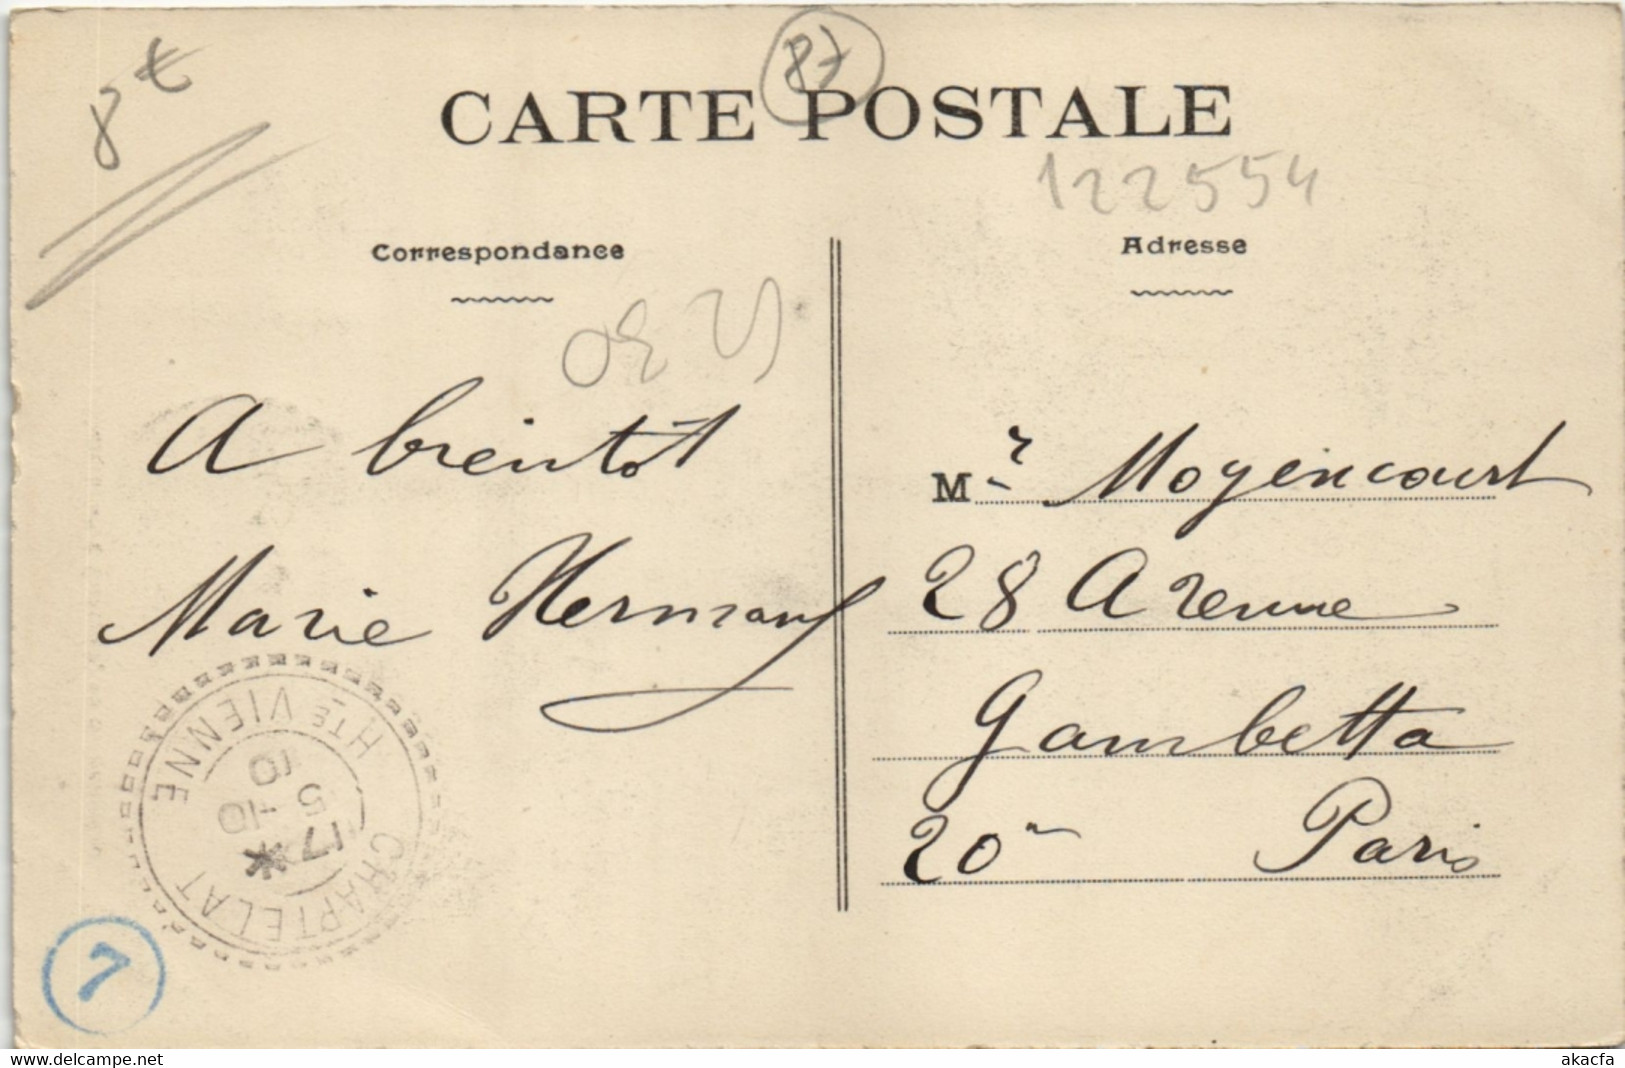 8€
87
CARTE POSTALE
122554
Correspondance
Adresse
A bientôt
Marie Hermann
Mr Moyencourt
28 Avenue
Gambetta
20m Paris
CHAPTELAT
HTE VIENNE
17 *
5 -10
10
7
www.delcampe.net
akacfa